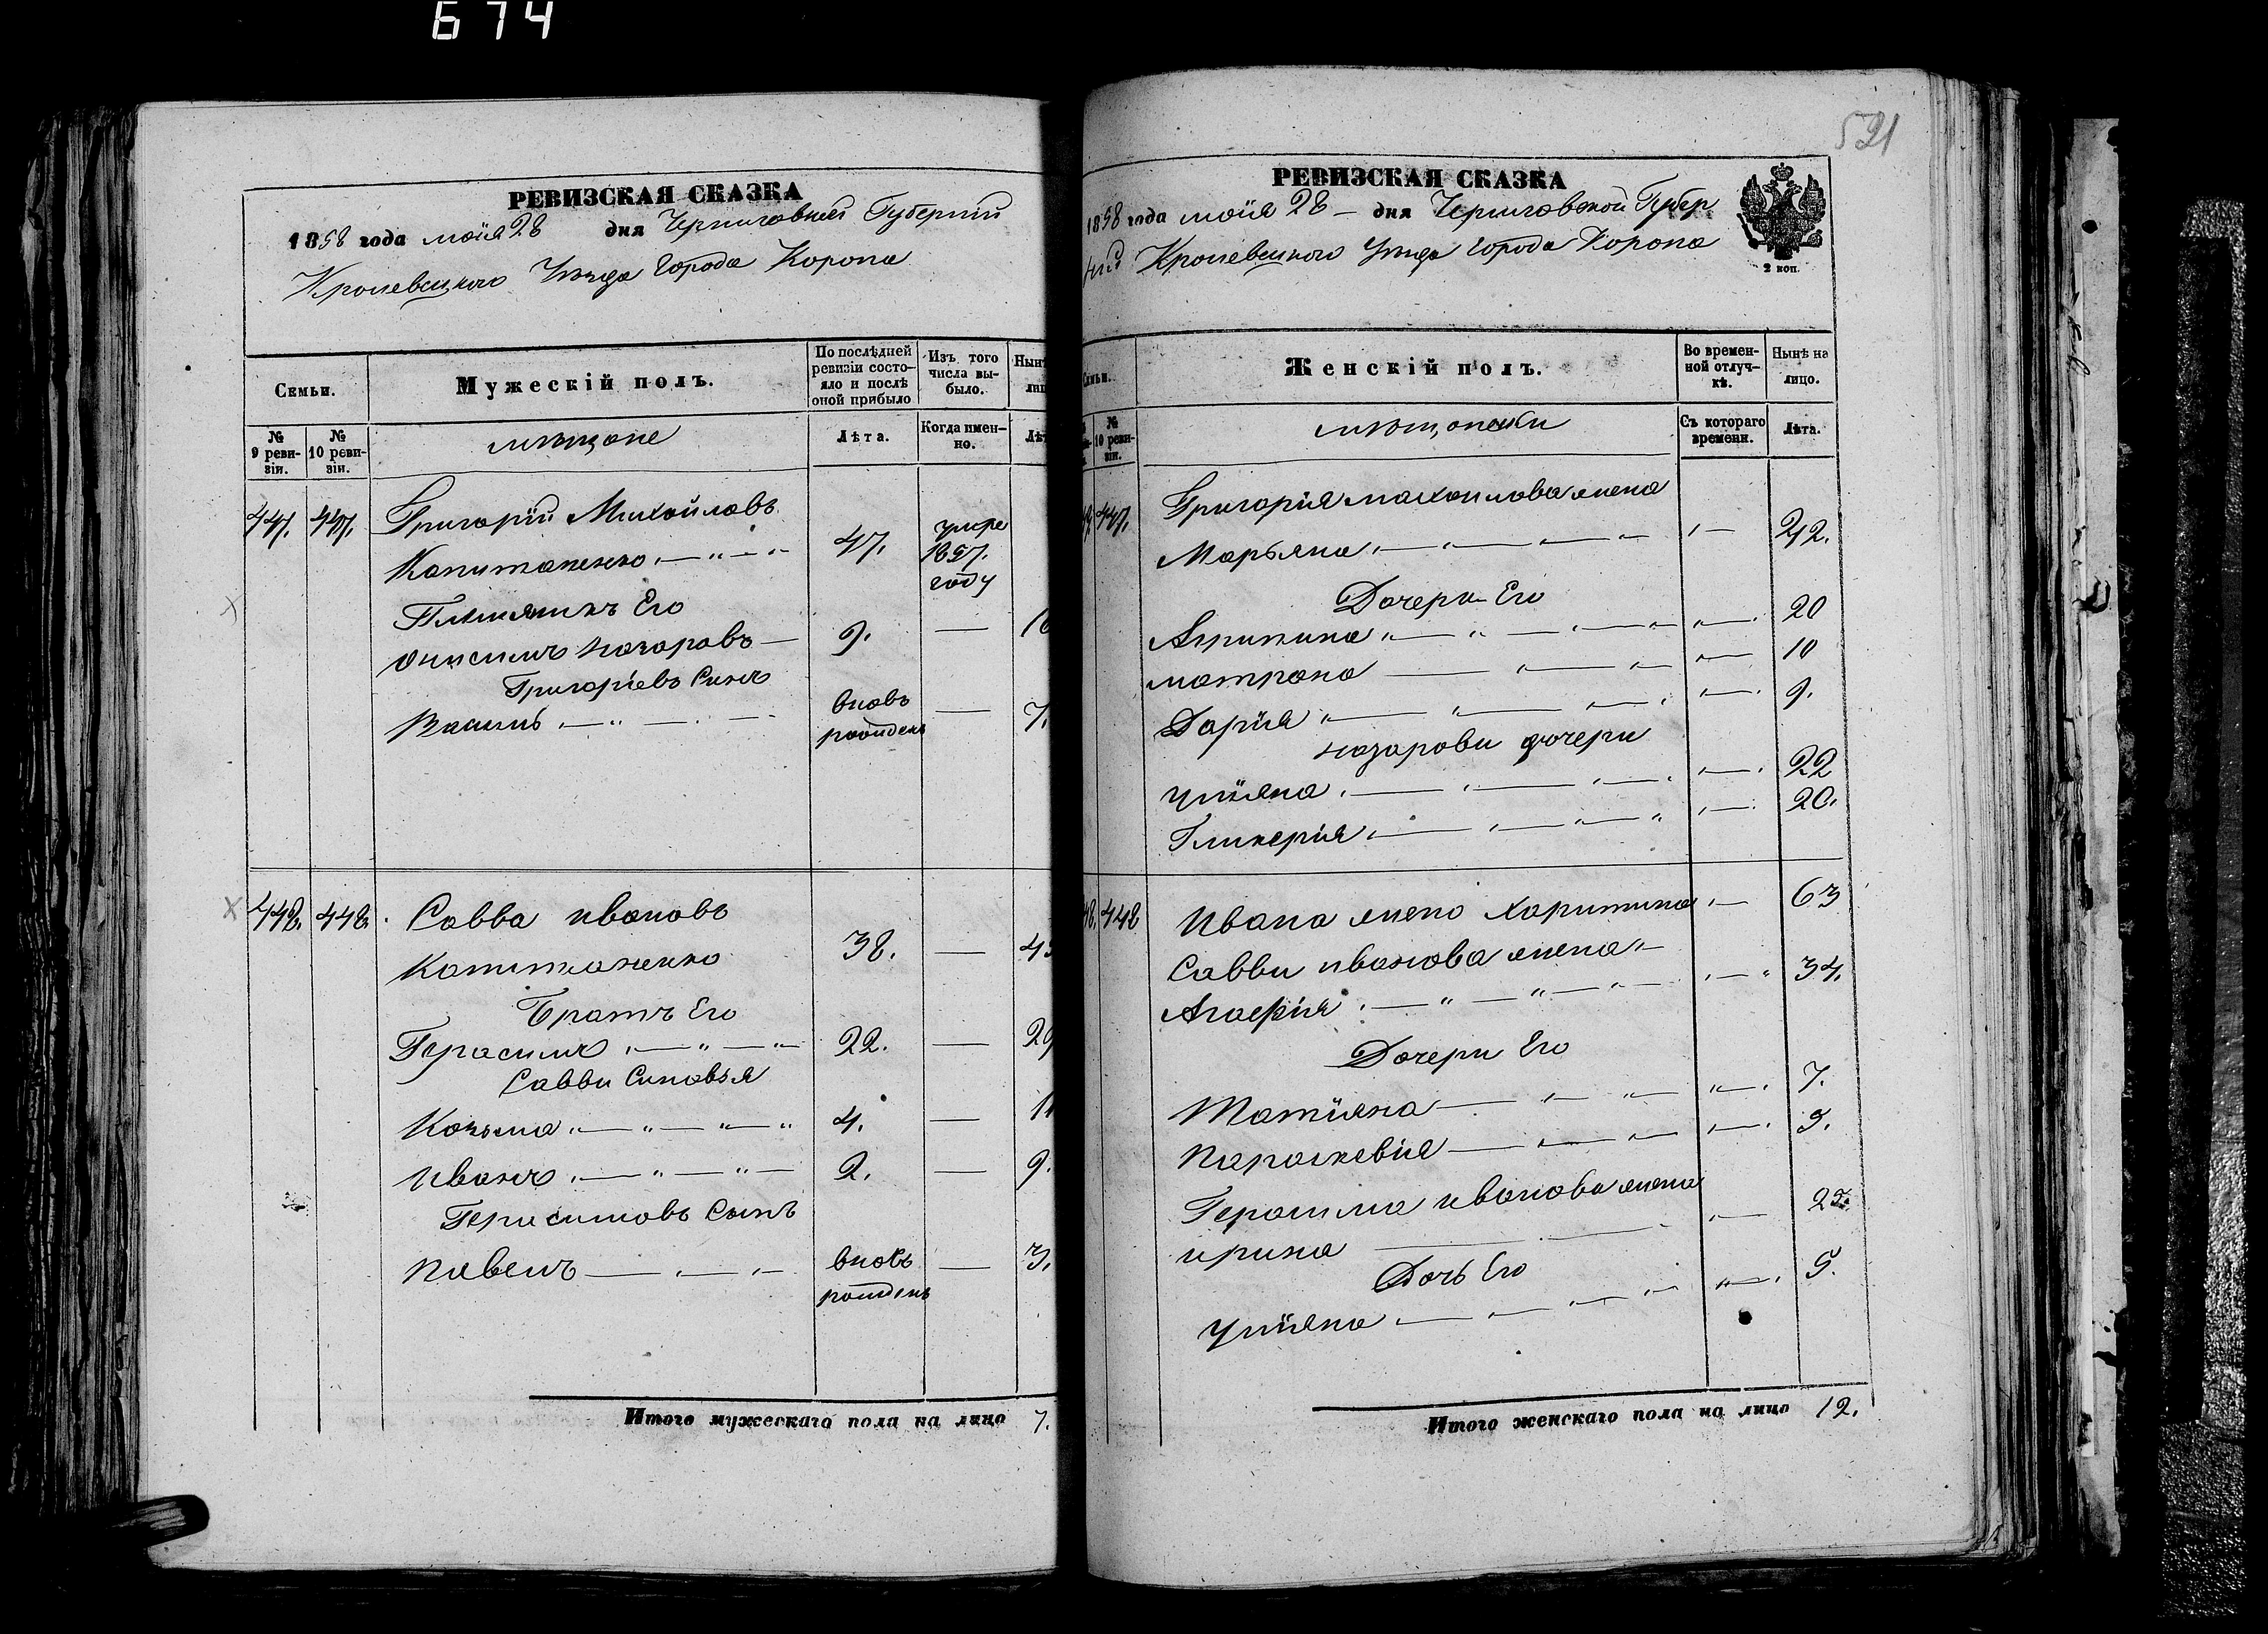 674
РЕВИЗСКАЯ СКАЗКА
1858 года маія 28 дня Черниговской Губерніи
Кролевецкого Уезда Города Коропа
Семьи.
Мужескій полъ.
По послѣдней ревизіи состояло и послѣ оной прибыло
Изъ того числа выбыло.
Нынѣ
лиц
№ 9 ревизіи.
№ 10 ревизіи.
мѣщане
Лѣта.
Когда именно.
Лѣт
447. 447. Григорій Михайловъ
Капитаненко 47. умре 1857. году
Племяникъ Его
Онисимъ Назаровъ 9. — 16
Григоріевъ Синъ
Василь вновь рожденъ — 7.
448. 448. Савва Ивановъ
Капитаненко 38. — 45
Братъ Его
Герасимъ 22. — 29
Савви Синовья
Козьма 4. — 11
Иванъ 2. — 9.
Герасимовъ Сынъ
Павелъ вновь рожденъ — 3.
Итого мужескаго пола на лицо 7.
521
РЕВИЗСКАЯ СКАЗКА
1858 года маія 28 — дня Черниговской Губер
ніи Кролевецкого Уезда Города Коропа
2 коп.
Семьи.
Женскій полъ.
Во временной отлучкѣ.
Нынѣ на лицо.
№ 10 ревизіи.
мѣщанки
Съ котораго времени.
Лѣта.
447. Григорія Михайлова жена
Марьяна 42.
Дочери Его
Агрипина 20
Матрона 10
Дарія 9.
Назарови дочери
Уліяна 22
Гликерія 20.
48. 448 Ивана жена Харитина 63
Савви Иванова жена
Агафія 34.
Дочери Его
Татіяна 7.
Параскевія 5.
Герасима Иванова жена
Ирина 25.
Дочь Его
Уліяна 5.
Итого женскаго пола на лицо 12.